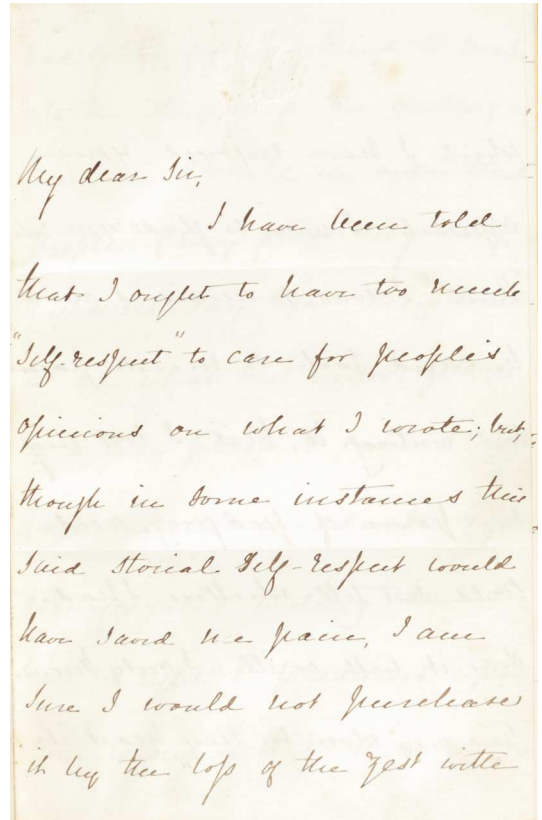 My dear Sir,
I have been told
that I ought to have too much
"Self respect" to care for people's
opinions on what I wrote; but,
though in some instances this
said stoical Self-respect would
have saved me pain, I am
sure I would not purchase
it by the loss of the zest with